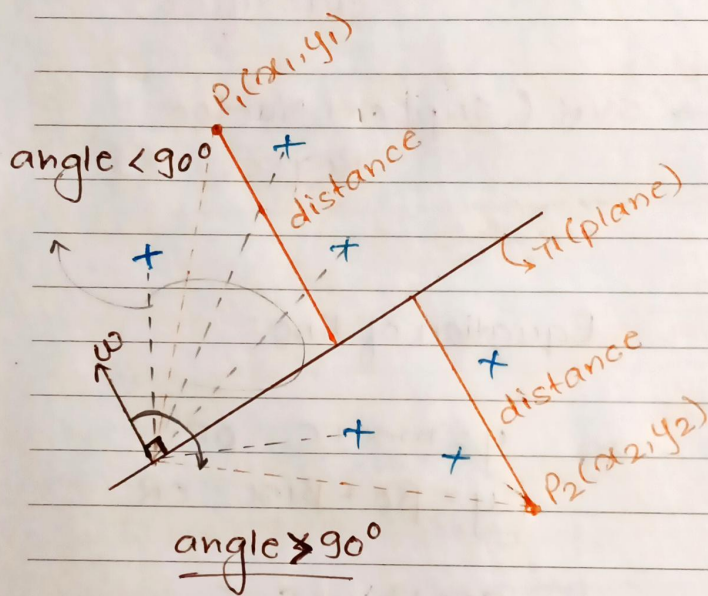 P₁(x₁,y₁)
angle < 90°
distance
π(plane)
ω
distance
P₂(x₂,y₂)
angle > 90°